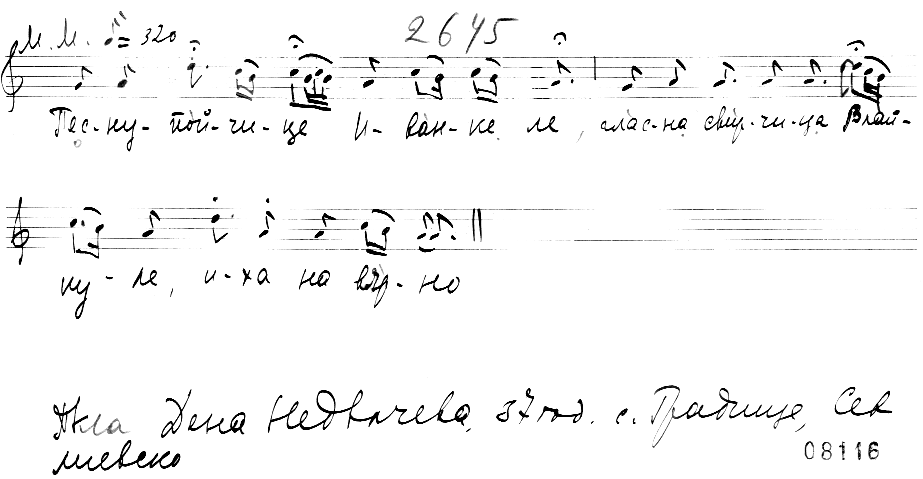 М. М. ♪ = 320 2645
Пес-ну- пой-чи-це И-ван-ке ле, глас-на свир-чи-ца Влай-
ку-ле, и-ха на вяр-но
Дена Недялчева, 37 год. с. Градище, Сев
лиевско
08116